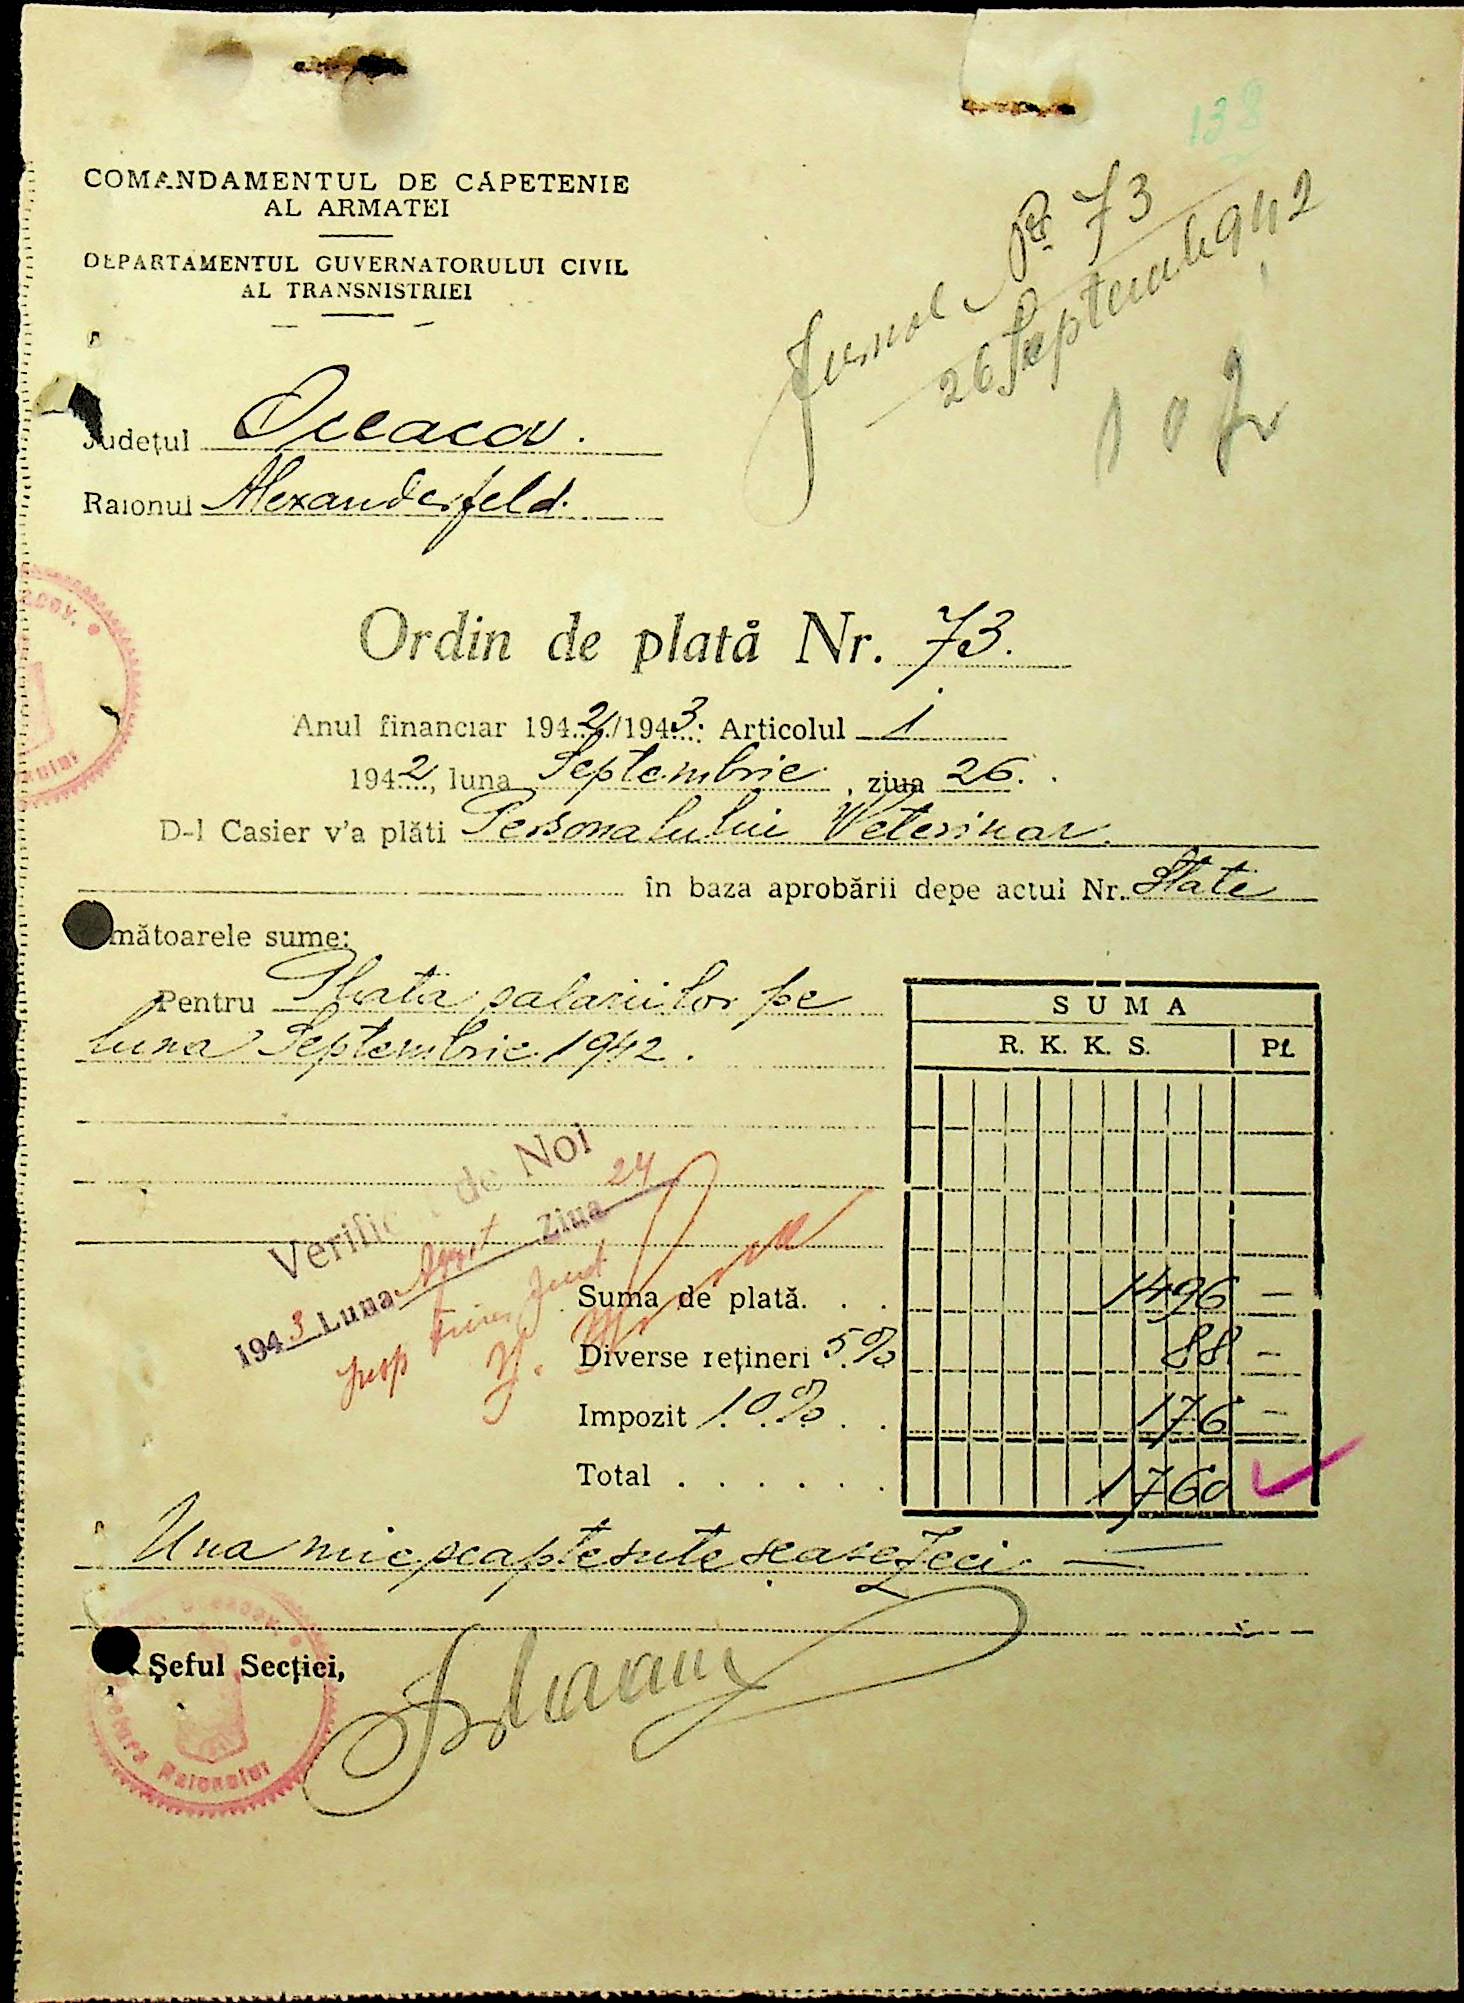 138
COMANDAMENTUL DE CĂPETENIE
AL ARMATEI
DEPARTAMENTUL GUVERNATORULUI CIVIL
AL TRANSNISTRIEI
Jurnal No 73
26 Septembrie 942
Județul Oceacov.
Raionul Alexanderfeld.
Ordin de plată Nr. 73.
Anul financiar 1942/1943. Articolul 1
1942, luna Septembrie, ziua 26.
D-l Casier v'a plăti Personalului Veterinar.
în baza aprobării depe actul Nr. State
mătoarele sume:
Pentru Plata salariilor pe
luna Septembrie 1942.
SUMA
R. K. K. S. Pf.
Verific de Noi
1943 Luna August Ziua 24
Suma de plată. . . 1496 —
Diverse rețineri 5% 88 —
Impozit 10% . . 176 —
Total . . . . . . 1760 —
Una mie șeaptesute șeasezeci —
Șeful Secției,
Raionului